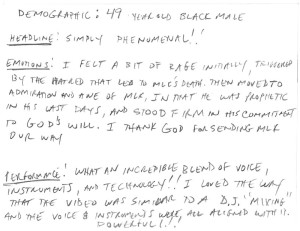 DEMOGRAPHIC: 49 YEAR OLD BLACK MALE
HEADLINE: SIMPLY PHENOMENAL!!
EMOTIONS: I FELT A BIT OF RAGE INITIALLY, TRIGGERED
BY THE HATRED THAT LED TO MLK'S DEATH. THEN MOVED TO
ADMIRATION AND AWE OF MLK, IN THAT HE WAS PROPHETIC
IN HIS LAST DAYS, AND STOOD FIRM IN HIS COMMITMENT
TO GOD'S WILL. I THANK GOD FOR SENDING MLK
OUR WAY
PERFORMANCE: WHAT AN INCREDIBLE BLEND OF VOICE,
INSTRUMENTS, AND TECHNOLOGY!! I LOVED THE WAY
THAT THE VIDEO WAS SIMILAR TO A D.J. "MIXING"
AND THE VOICE & INSTRUMENTS WERE ALL ALIGNED WITH IT.
POWERFUL!!!